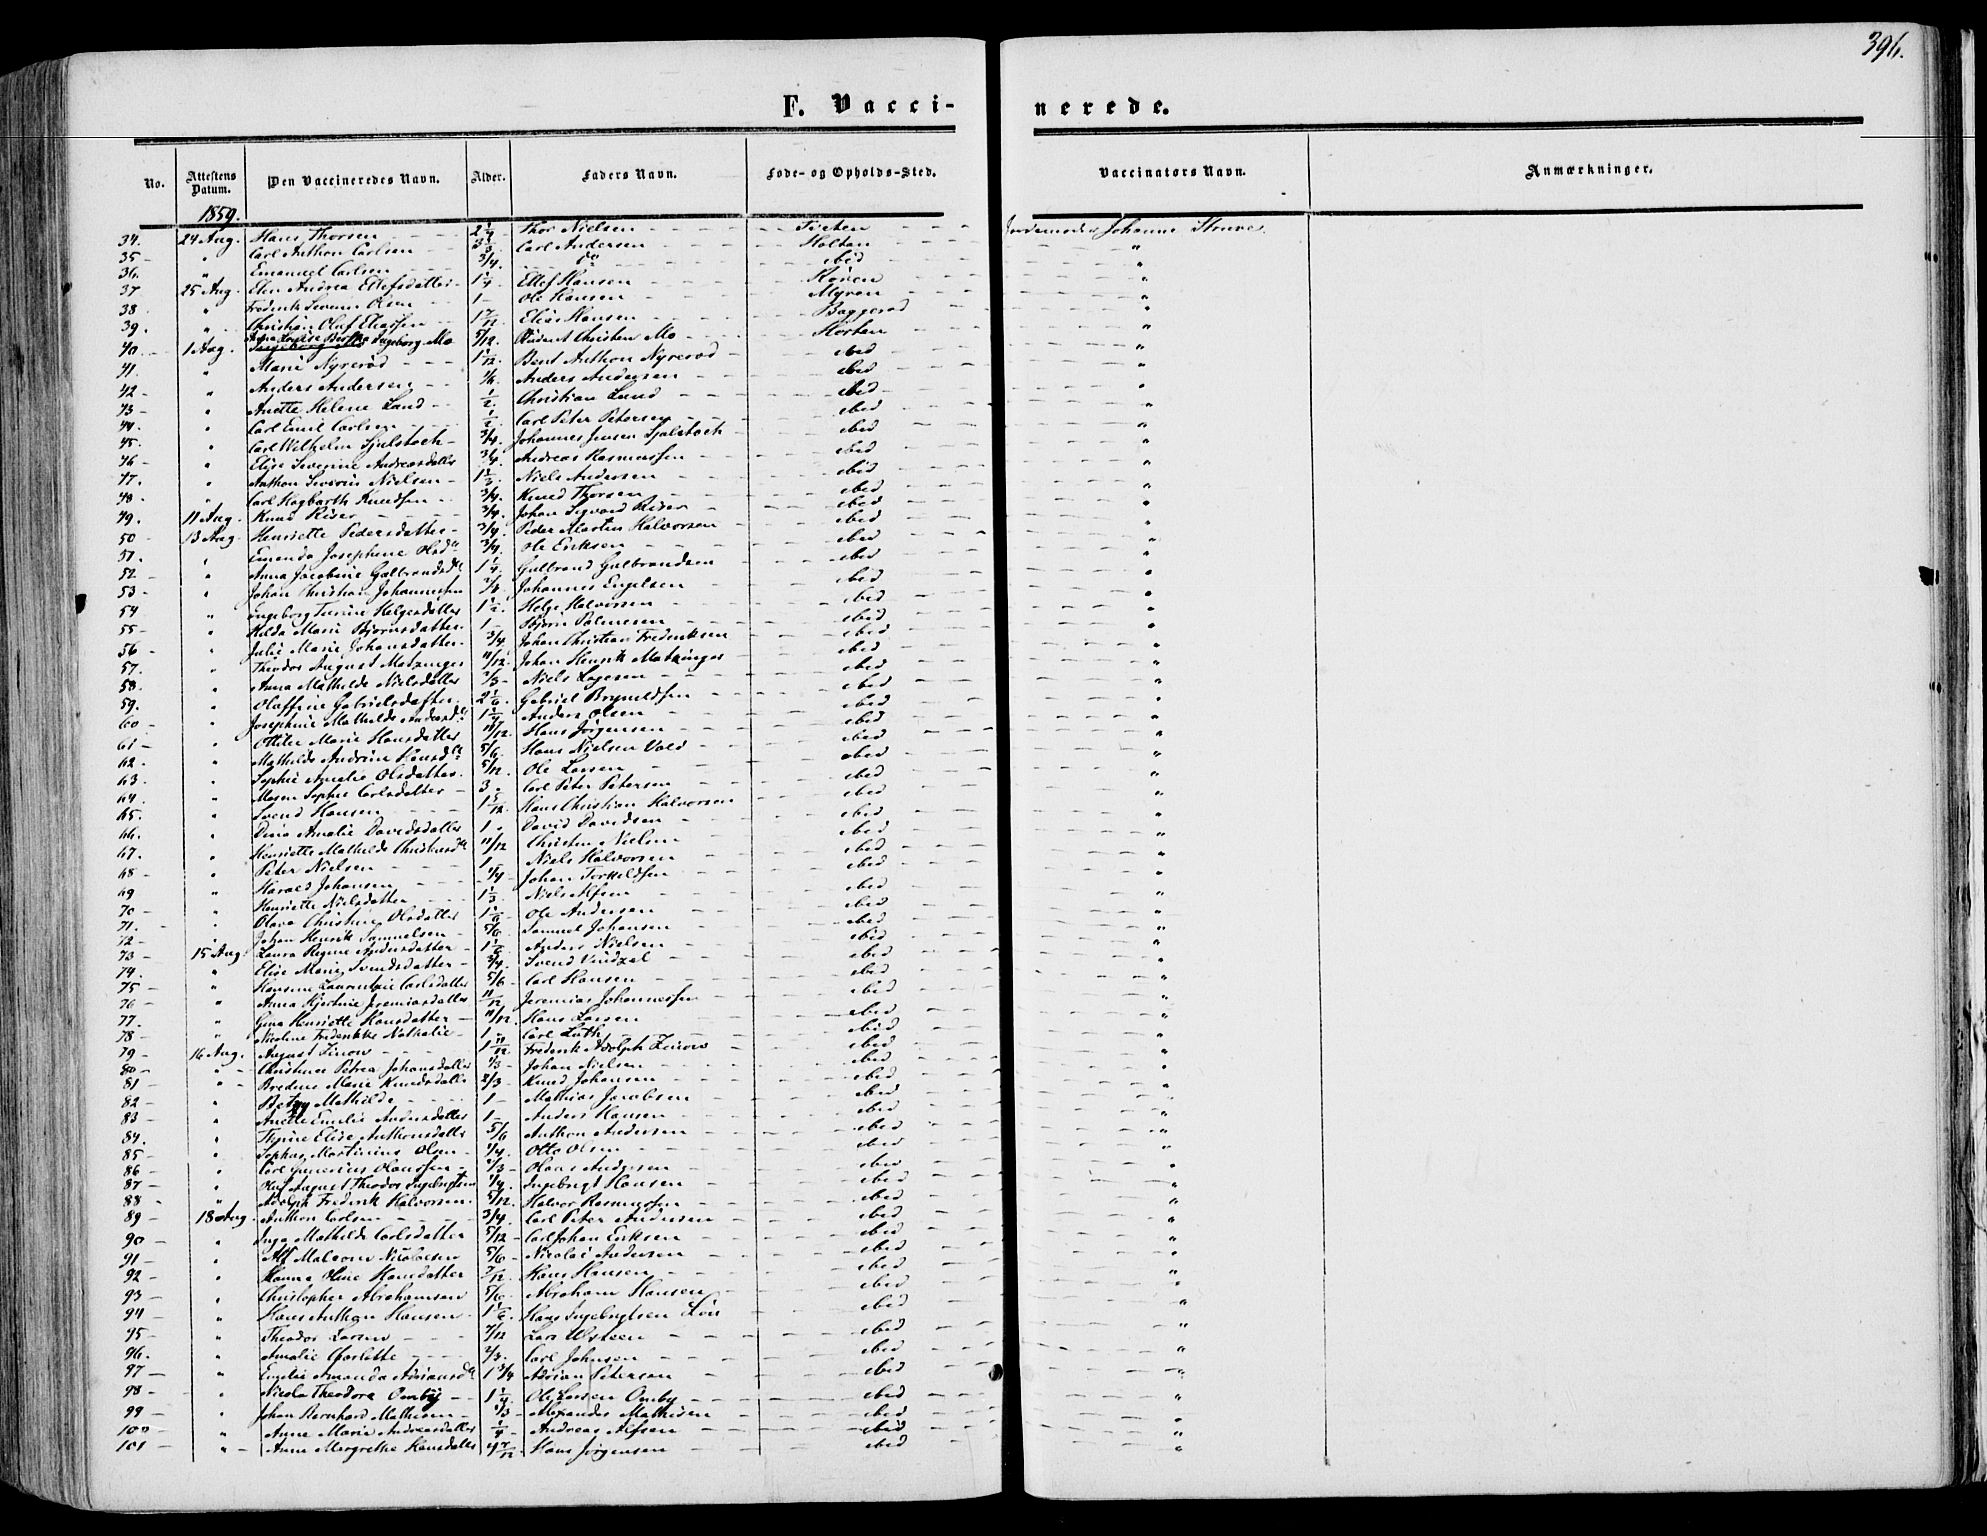 396.
F. Vaccinerede.
No. Attestens Datum. Den Vaccineredes Navn. Alder. Faders Navn. Føde- og Opholds-Sted. Vaccinators Navn. Anmærkninger.
1859.
34. 24 Aug. Hans Thorsen 2 1/4 Thor Nielsen Tveten Jordemoder Johanne Struve
35 " Carl Anthon Carlsen 3 1/3 Carl Andersen Holtan "
36. " Emanuel Carlsen 3/4 do ibid "
37 25 Aug. Elen Andrea Ellefsdatter 1 1/4 Ellef Hansen Røren "
38 " Frederik Severin Olsen 1 Ole Hansen Myran "
39. " Christian Olaf Eliassen 1 7/12 Elias Hansen Baggerød "
40 1 Aug. Anna Louise Bertha Ingeborg Mo 5/12 Student Christen Mo Horten "
41. " Marie Nyrerød 1 1/12 Bent Anthon Nyrerød ibid "
42 " Anders Andersen 1/6 Anders Andersen ibid "
43 " Anette Helene Lund 1/2 Christian Lund ibid "
44. " Carl Emil Carlsen 1/2 Carl Peter Petersen ibid "
45. " Carl Wilhelm Sjulstock 3/4 Johannes Jensen Sjølstock ibid "
46 " Elise Severine Andreasdatter 3/4 Andreas Rasmussen ibid "
47. " Anthon Severin Nielsen 1 1/3 Niels Andersen ibid "
48. " Carl Hagbarth Knudsen 3/4 Knud Thorsen ibid "
49. 11 Aug. Knud Riser 3/4 Johan Sigvard Riser ibid "
50 13 Aug. Henriette Pedersdatter 3/4 Peder Martin Halvorsen ibid "
51. " Emenda Josephine Olsd. 3/4 Ole Eriksen ibid "
52 " Anna Jacobine Gulbrandsd. 1 1/4 Gulbrand Gulbrandsen ibid "
53 " Johan Christian Johannessen 2/3 Johannes Engelsen ibid "
54 " Ingeborg Turine Helgesdatter 1 1/2 Helge Halvorsen ibid "
55 " Hilda Marie Bjørnsdatter 1 Bjørn Salmesen ibid "
56 " Julie Marie Johansdatter 3/4 Johan Christian Frederiksen ibid "
57. " Theodor August Matzinger 11/12 Johan Henrik Matzinger ibid "
58. " Anna Mathilde Nielsdatter 2/3 Niels Lagesen ibid "
59. " Olaffine Gabrielsdatter 2 1/6 Gabriel Brynildsen ibid "
60 " Josephine Mathilde Andersd. 1 1/4 Anders Olsen ibid "
61 " Ottilie Marie Hansdatter 11/12 Hans Jørgensen ibid "
62. " Mathilde Andrine Hansd. 5/6 Hans Nielsen Vold ibid "
63. " Sophie Amalie Olsdatter 5/12 Ole Larsen ibid "
64 " Maren Sophie Carlsdatter 3 Carl Peter Petersen ibid "
65. " Svend Hansen 1 5/12 Hans Christian Halvorsen ibid "
66. " Dina Amalie Davidsdatter 1 David Davidsen ibid "
67. " Henriette Mathilde Christensd. 11/12 Christen Nielsen ibid "
68 " Peter Nielsen 1 Niels Halvorsen ibid "
69 " Harald Johansen 1/4 Johan Torkildsen ibid "
70 " Henriette Nielsdatter 1 1/3 Niels Alfsen ibid "
71. " Olava Christine Olsdatter 1 1/6 Ole Andersen ibid "
72 " Johan Henrik Samuelsen 5/6 Samuel Johansen ibid "
73 15 Aug. Laura Regine Andersdatter 1 1/6 Anders Nielsen ibid "
74. " Elise Marie Svendsdatter 3/4 Svend Vindzal ibid "
75 " Hansine Laurentzie Carlsdatter 5/6 Carl Hansen ibid "
76 " Anna Hjertine Jeremiasdatter 11/12 Jeremias Johannessen ibid "
77. " Gina Henriette Hansdatter 11/12 Hans Larsen ibid "
78 " Nicoline Frederikke Nathalie 1 Carl Luth ibid "
79 16 Aug. August Linow 1 11/12 Frederik Adolph Linow ibid "
80 " Christine Petrea Johansdatter 1/3 Johan Nielsen ibid "
81 " Bredine Marie Knudsdatter 2/3 Knud Johansen ibid "
82 " Betzy Mathilde 1 Mathias Jacobsen ibid "
83 " Anette Emilie Andersdatter 1 Anders Hansen ibid "
84. " Thrine Elise Anthonsdatter 5/6 Anthon Andersen ibid "
85 " Sophus Martinius Olsen 1/4 Otto Olsen ibid "
86 " Carl Olaussen 2/3 Olaus Andersen ibid "
87 " Oluf August Theodor Ingebrigtsen 1/4 Ingebrigt Hansen ibid "
88 " Adolph Frederik Halvorsen 5/12 Halvor Rasmussen ibid "
89 18 Aug. Anthon Carlsen 3/4 Carl Peter Andersen ibid "
90 " Inga Mathilde Carlsdatter 5/12 Carl Johan Eriksen ibid "
91 " Alf Malvom Nicolaisen 5/6 Nicolai Andersen ibid "
92 " Hanna Oline Hansdatter 7/12 Hans Hansen ibid "
93 " Christopher Abrahamsen 5/6 Abraham Hansen ibid "
94 " Hans Anthon Hansen 1 1/6 Hans Ingebrigtsen Løis ibid "
95 " Theodor Larsen 7/12 Lars Ulsteen ibid "
96. " Amalie Charlotte 2/3 Carl Johnsen ibid "
97 " Engelie Amanda Adriansd. 1 3/4 Adrian Petersen ibid "
98 " Nicola Theodora Omby 1 1/4 Ole Larsen Omby ibid "
99 " Johan Bernhard Mathisen 1/3 Alexander Mathisen ibid "
100 " Anne Marie Andreasdatter 1/4 Andreas Alfsen ibid "
101 " Anne Mergrethe Hansdatter 4 7/12 Hans Jørgensen ibid "